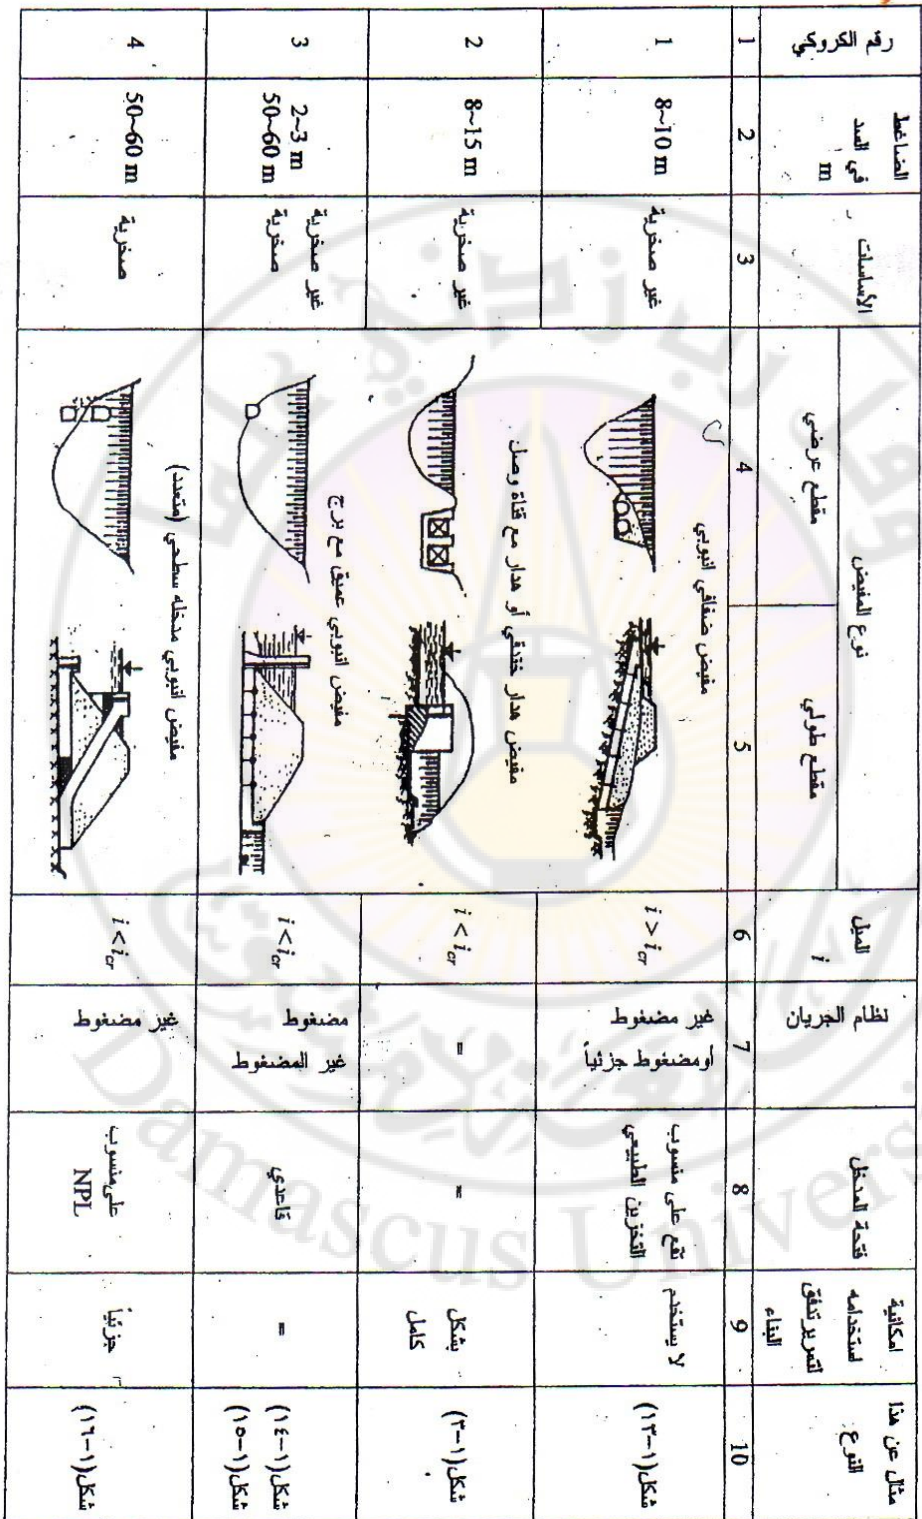 رقم الكروكي
الضاغط
في السد
m
الأساسات
نوع المفيض
مقطع عرضي
مقطع طولي
الميل
i
نظام الجريان
فتحة المدخل
امكانية
استخدامه
لتمرير تدفق
البناء
مثال عن هذا
النوع
1
2
3
4
5
6
7
8
9
10
1
8~10 m
غير صخرية
مفيض ضفافي انبوبي
i > icr
غير مضغوط
أومضغوط جزئياً
تقع على منسوب
التخزين الطبيعي
لا يستخدم
شكل(١-١٣)
2
8~15 m
غير صخرية
مفيض هدار خندقي أو هدار مع قناة وصل
i < icr
=
=
بشكل
كامل
شكل(١-٣)
3
2~3 m
50~60 m
غير صخرية
صخرية
مفيض انبوبي عميق مع برج
i < icr
مضغوط
غير المضغوط
قاعدي
=
شكل(١-١٤)
شكل(١-١٥)
4
50~60 m
صخرية
مفيض انبوبي مدخله سطحي (متعدد)
i < icr
غير مضغوط
على منسوب
NPL
جزئياً
شكل(١-١٦)
Damascus Univers